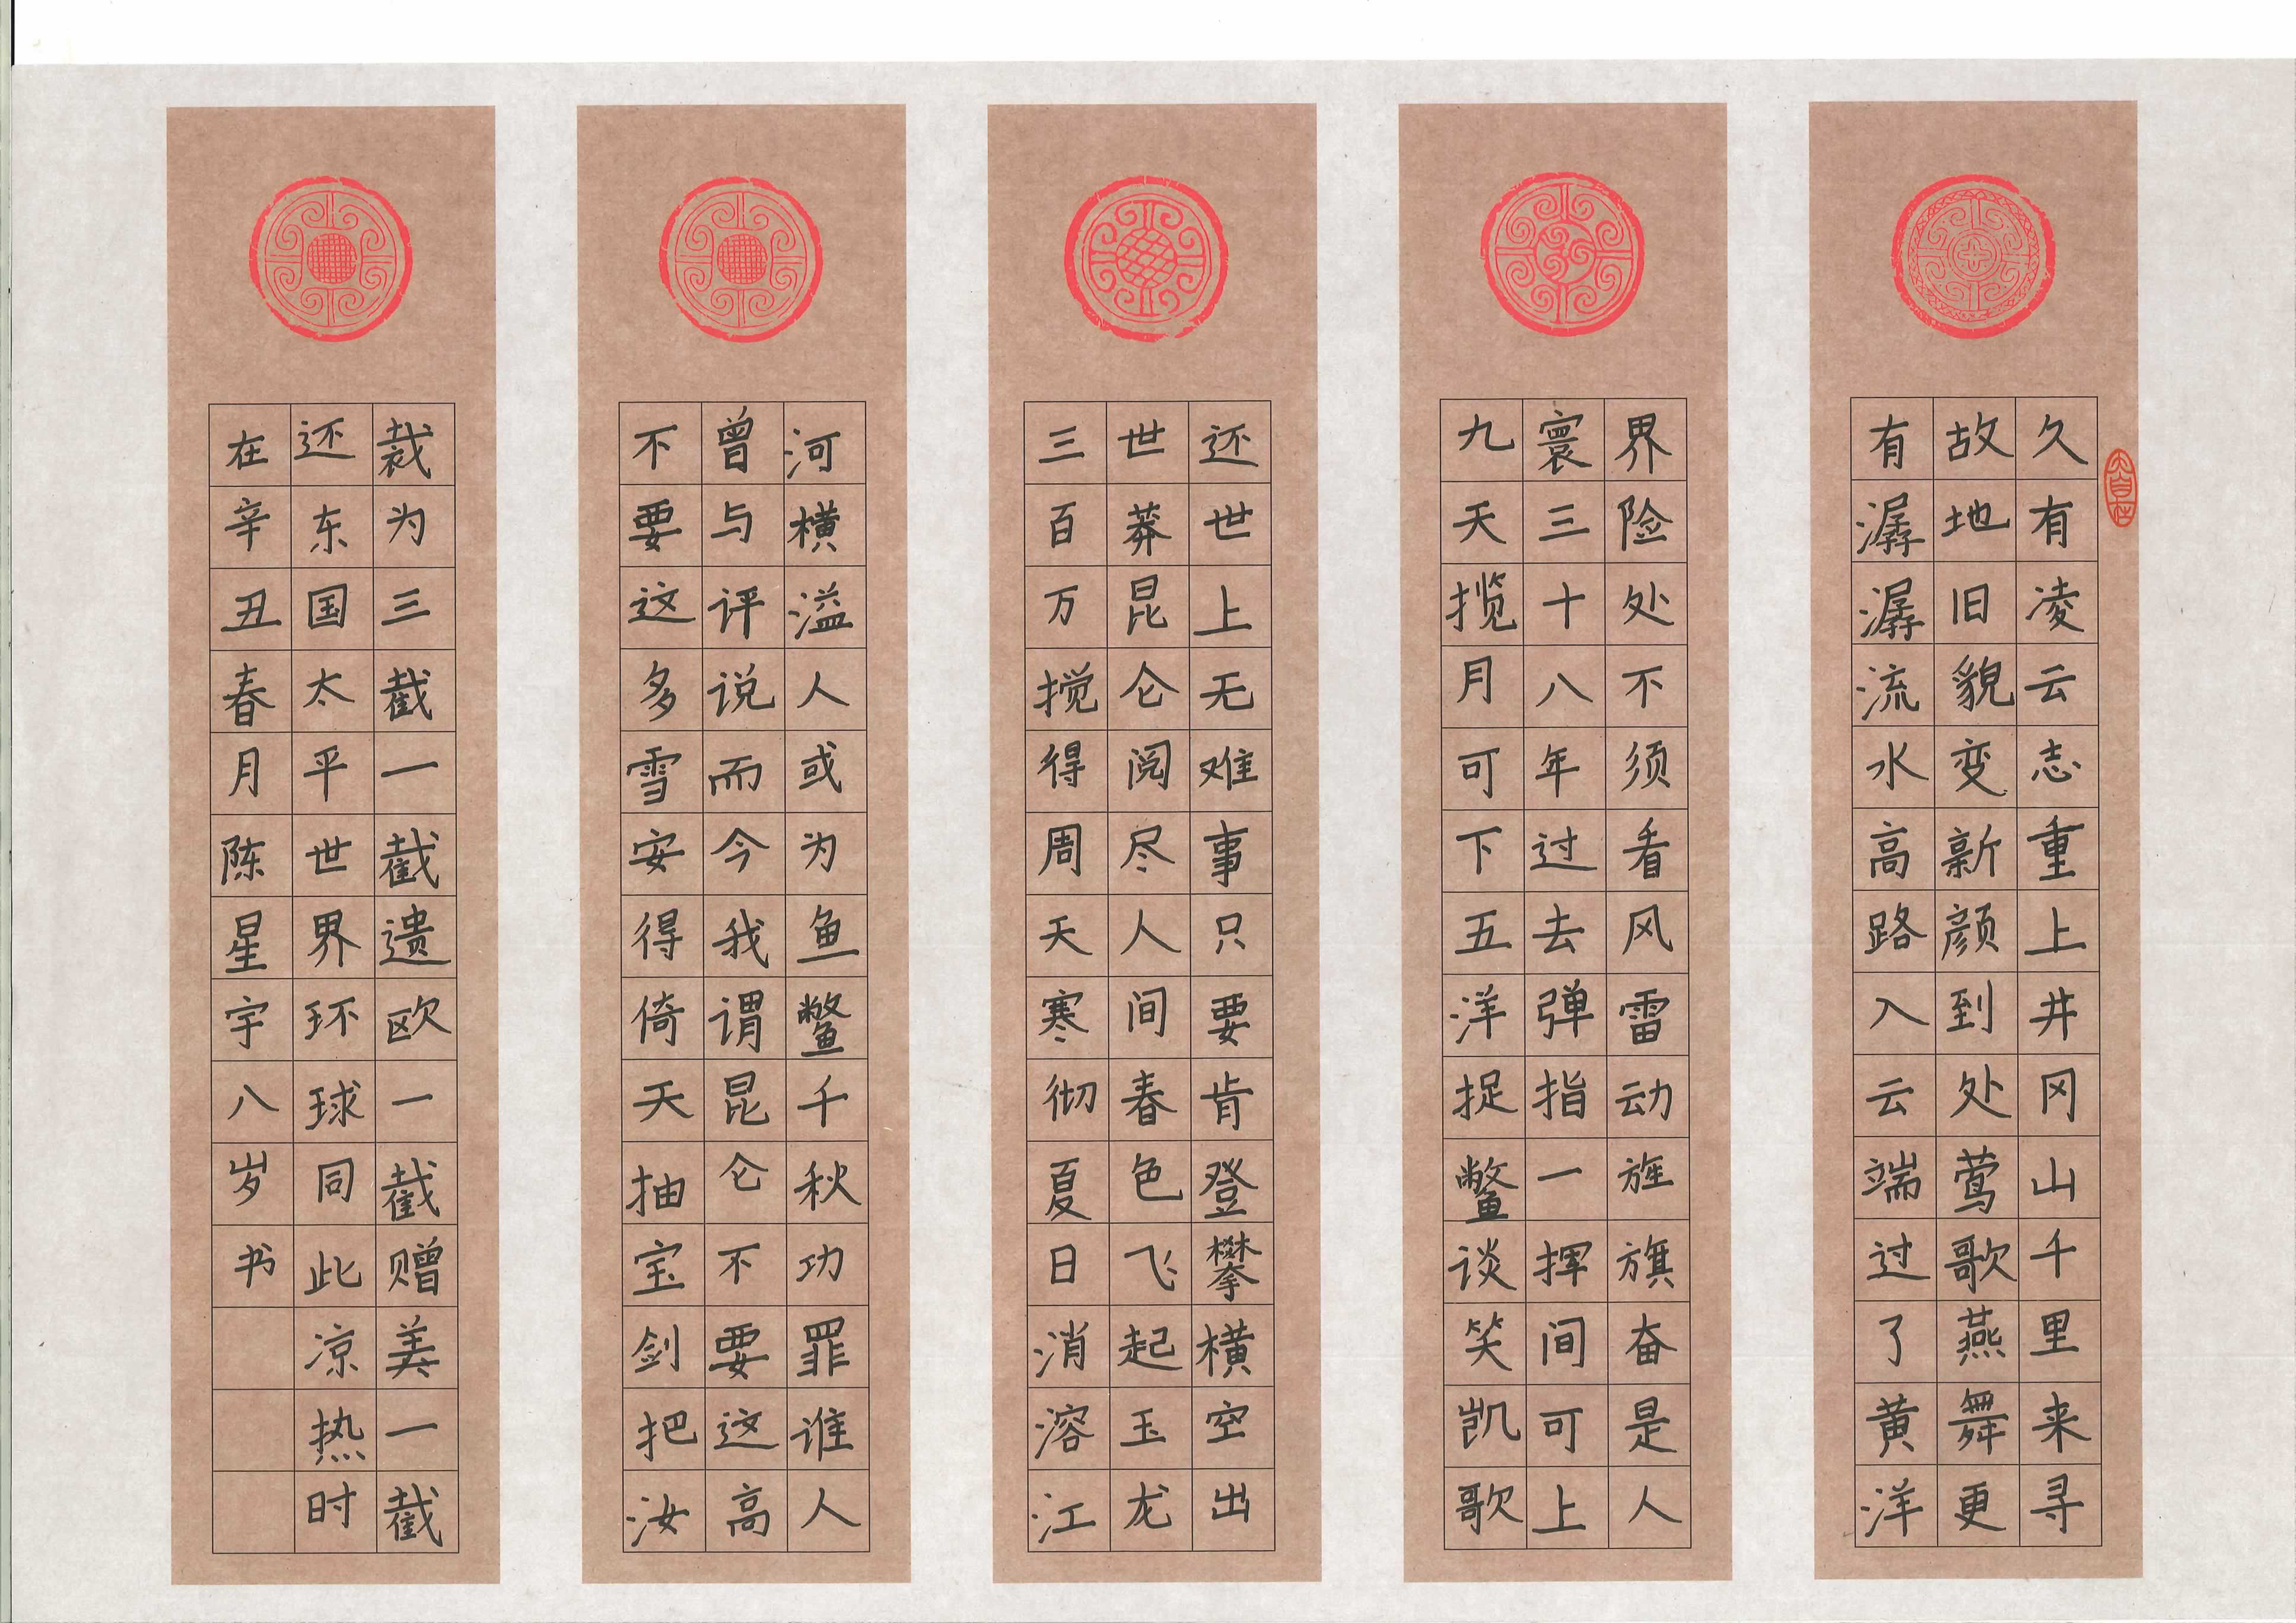 大自在
久有凌云志重上井冈山千里来寻
故地旧貌变新颜到处莺歌燕舞更
有潺潺流水高路入云端过了黄洋
界险处不须看风雷动旌旗奋是人
寰三十八年过去弹指一挥间可上
九天揽月可下五洋捉鳖谈笑凯歌
还世上无难事只要肯登攀横空出
世莽昆仑阅尽人间春色飞起玉龙
三百万搅得周天寒彻夏日消溶江
河横溢人或为鱼鳖千秋功罪谁人
曾与评说而今我谓昆仑不要这高
不要这多雪安得倚天抽宝剑把汝
裁为三截一截遗欧一截赠美一截
还东国太平世界环球同此凉热时
在辛丑春月陈星宇八岁书